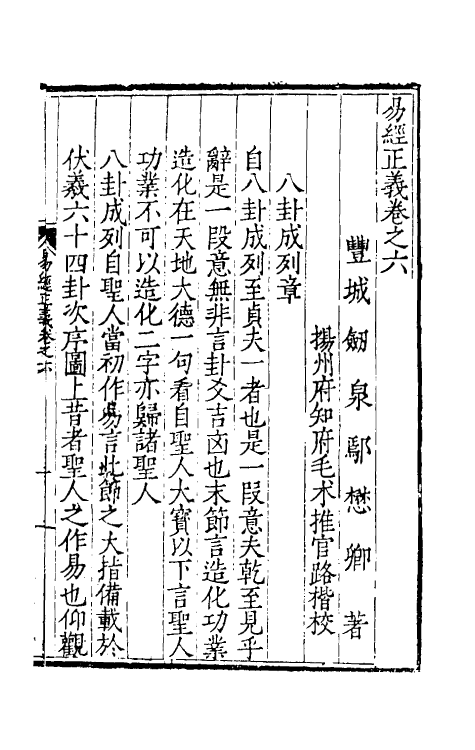 易經正義卷之六
豐城劒泉鄢懋卿著
揚州府知府毛术推官路楷校
八卦成列章
自八卦成列至貞夫一者也是一段意夫乾至見乎
辭是一段意無非言卦爻吉凶也末節言造化功業
造化在天地大德一句看自聖人大寶以下言聖人
功業不可以造化二字亦歸諸聖人
八卦成列自聖人當初作易言此節之大指備載於
伏羲六十四卦次序圖上昔者聖人之作易也仰觀
易經正義卷之六